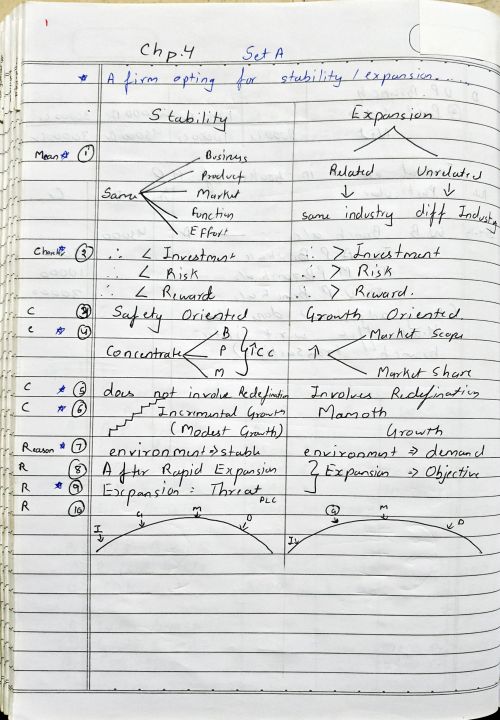 1
Chp.4 Set A
* A firm opting for stability / expansion.....
Stability Expansion
Mean * ① Same Business
Product
Market
Function
Effort
Related Unrelated
↓ ↓
same industry diff Industry
∴ < Investment ∴ > Investment
∴ < Risk ∴ > Risk
∴ < Reward ∴ > Reward.
C Safety Oriented Growth Oriented.
C * ④ Concentrate B
P
M
} ↑ Cc
↑ Market Scope
Market Share
C * ⑤ does not involve Redefination Involves Redefination
C * ⑥ Incrimental Growth Mamoth
(Modest Growth) Growth
Reason * ⑦ environment ⇒ stable environment ⇒ demand
R ⑧ After Rapid Expansion } Expansion ⇒ Objective
R * ⑨ Expansion = Threat
PLC
R ⑩ I G M D I G M D